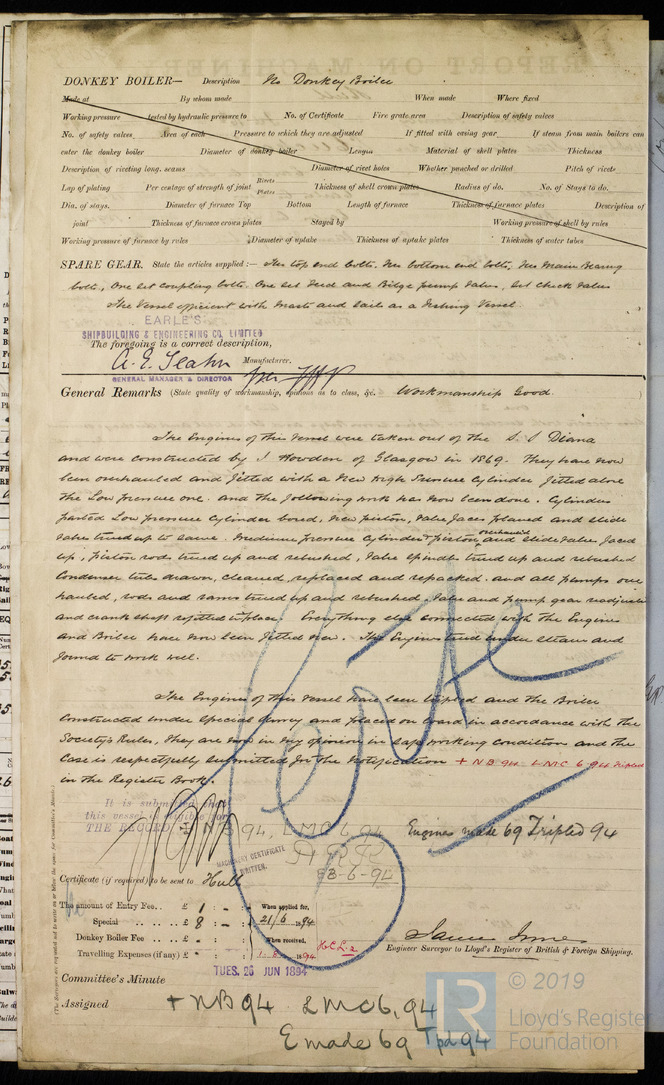 DONKEY BOILER— Description No Donkey Boiler
Made at By whom made When made Where fixed
Working pressure tested by hydraulic pressure to No. of Certificate Fire grate area Description of safety valves
No. of safety valves Area of each Pressure to which they are adjusted If fitted with casing gear If steam from main boilers can
enter the donkey boiler Diameter of donkey boiler Length Material of shell plates Thickness
Description of riveting long. seams Diameter of rivet holes Whether punched or drilled Pitch of rivets
Lap of plating Per centage of strength of joint Rivets Plates Thickness of shell crown plates Radius of do. No. of Stays to do.
Dia. of stays. Diameter of furnace Top Bottom Length of furnace Thickness of furnace plates Description of
joint Thickness of furnace crown plates Stayed by Working pressure of shell by rules
Working pressure of furnace by rules Diameter of uptake Thickness of uptake plates Thickness of water tubes
SPARE GEAR. State the articles supplied:— Two top end bolts. Two bottom end bolts, Two main Bearing
bolts, One set coupling bolts. One set Feed and Bilge pump valves, set check valves
The Vessel efficient with masts and sails as a Fishing Vessel
EARLE'S
SHIPBUILDING & ENGINEERING CO. LIMITED
The foregoing is a correct description,
A. E. Seaton Manufacturer.
GENERAL MANAGER & DIRECTOR
General Remarks (State quality of workmanship, opinions as to class, &c. Workmanship Good.
The Engines of this vessel were taken out of the S.S Diana
and were constructed by J Howden of Glasgow in 1869. They have now
been overhauled and fitted with a new High Pressure Cylinder fitted above
the Low pressure one. and the following work has now been done. Cylinders
parted Low pressure Cylinder bored, new piston, valve faces planed and slide
valve trued up to same. Medium pressure Cylinder & piston overhauled and slide valve faced
up, piston rods trued up and rebushed, valve spindles trued up and rebushed
Condenser tubes drawn, cleaned, replaced and repacked. and all pumps over
hauled, rods and rams trued up and rebushed, valve and pump gear readjusted
and crank shaft refitted in place. Everything else connected with the Engines
and Boiler have now been fitted new. The Engines tried under steam and
found to work well.
The Engines of this vessel have been tripled and the Boiler
constructed under Special Survey and placed on board in accordance with the
Society's Rules, they are now in my opinion in safe working condition and the
Case is respectfully submitted for the notification + NB 94 LMC 6.94 Tripled
in the Register Book.
It is submitted that
this vessel is eligible for
THE RECORD + NB 94, LMC 6.94 Engines made 69 Tripled 94
MACHINERY CERTIFICATE
WRITTEN.
23-6-94
Certificate (if required) to be sent to Hull
The amount of Entry Fee.. £ 1 : - : - When applied for,
Special £ 8 : - : - 21/6 1894
Donkey Boiler Fee £ - : : When received,
Travelling Expenses (if any) £ - : :
James Innes
Engineer Surveyor to Lloyd's Register of British & Foreign Shipping.
TUES. 26 JUN 1894
Committee's Minute
Assigned + NB 94 LMC 6,94
E made 69 Tpd 94
© 2019
Lloyd's Register
Foundation